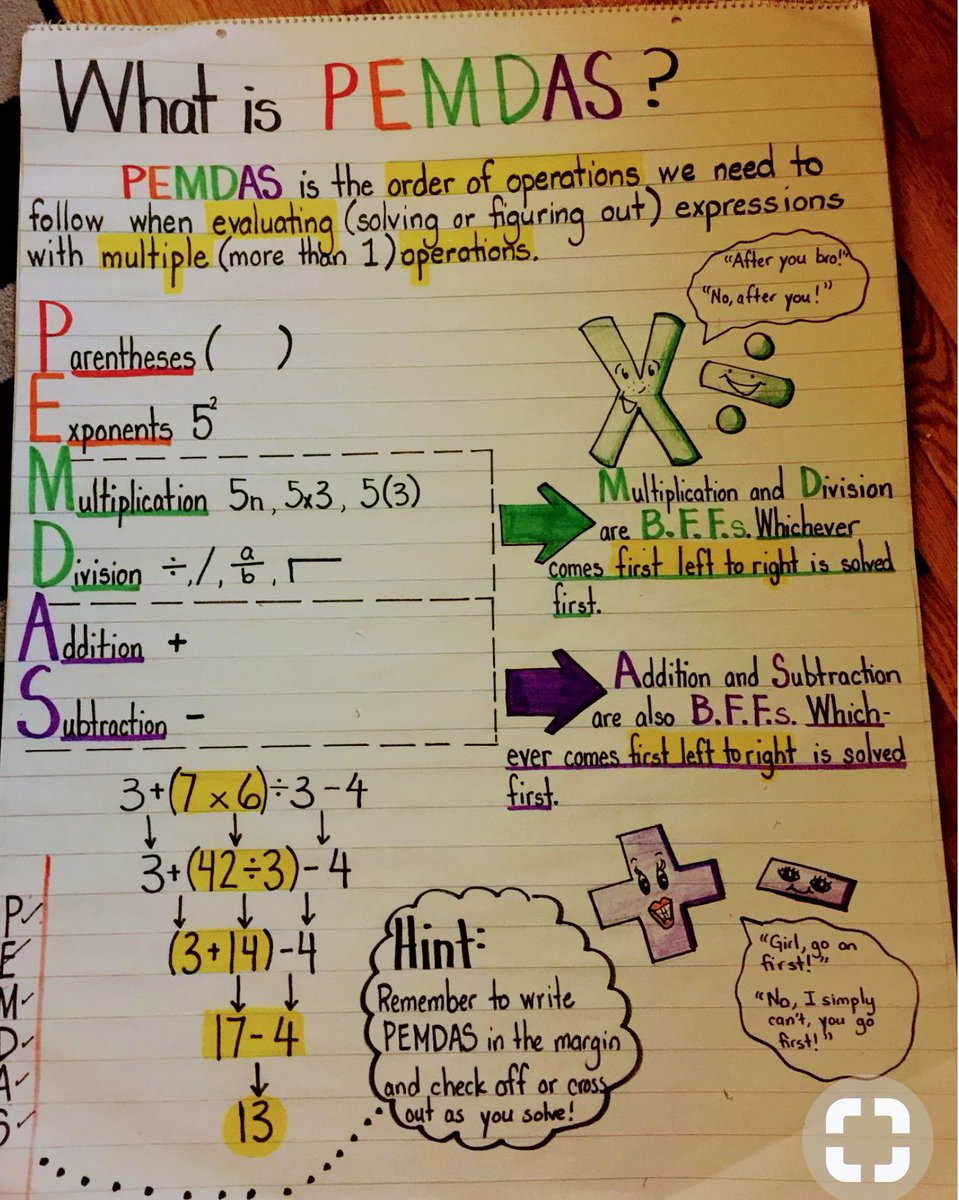 What is PEMDAS?
PEMDAS is the order of operations we need to
follow when evaluating (solving or figuring out) expressions
with multiple (more than 1) operations.
"After you bro!"
"No, after you!"
Parentheses ( )
Exponents 5²
Multiplication 5n, 5x3, 5(3)
Division ÷, /, a/b, ⟌
Addition +
Subtraction -
Multiplication and Division
are B.F.F.s. Whichever
comes first left to right is solved
first.
Addition and Subtraction
are also B.F.F.s. Which-
ever comes first left to right is solved
first.
3+(7×6)÷3-4
3+(42÷3)-4
(3+14)-4
17-4
13
P✓
E✓
M✓
D✓
A✓
S✓
Hint:
Remember to write
PEMDAS in the margin
and check off or cross
out as you solve!
"Girl, go on
first!"
"No, I simply
can't, you go
first!"